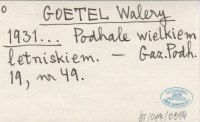 o
GOETEL Walery
1931... Podhale wielkiem
letniskiem. — Gaz. Podh.
19, nr 49.